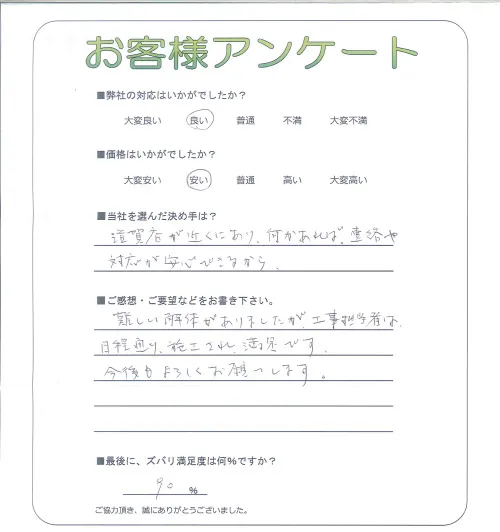 お客様アンケート
■弊社の対応はいかがでしたか？
大変良い 良い 普通 不満 大変不満
■価格はいかがでしたか？
大変安い 安い 普通 高い 大変高い
■当社を選んだ決め手は？
遠賀店が近くにあり、何かあれば、連絡や
対応が安心できるから、
■ご感想・ご要望などをお書き下さい。
難しい解体がありましたが、工事担当者は、
日程通り、施工され、満足です。
今後もよろしくお願いします。
■最後に、ズバリ満足度は何%ですか？
90 %
ご協力頂き、誠にありがとうございました。